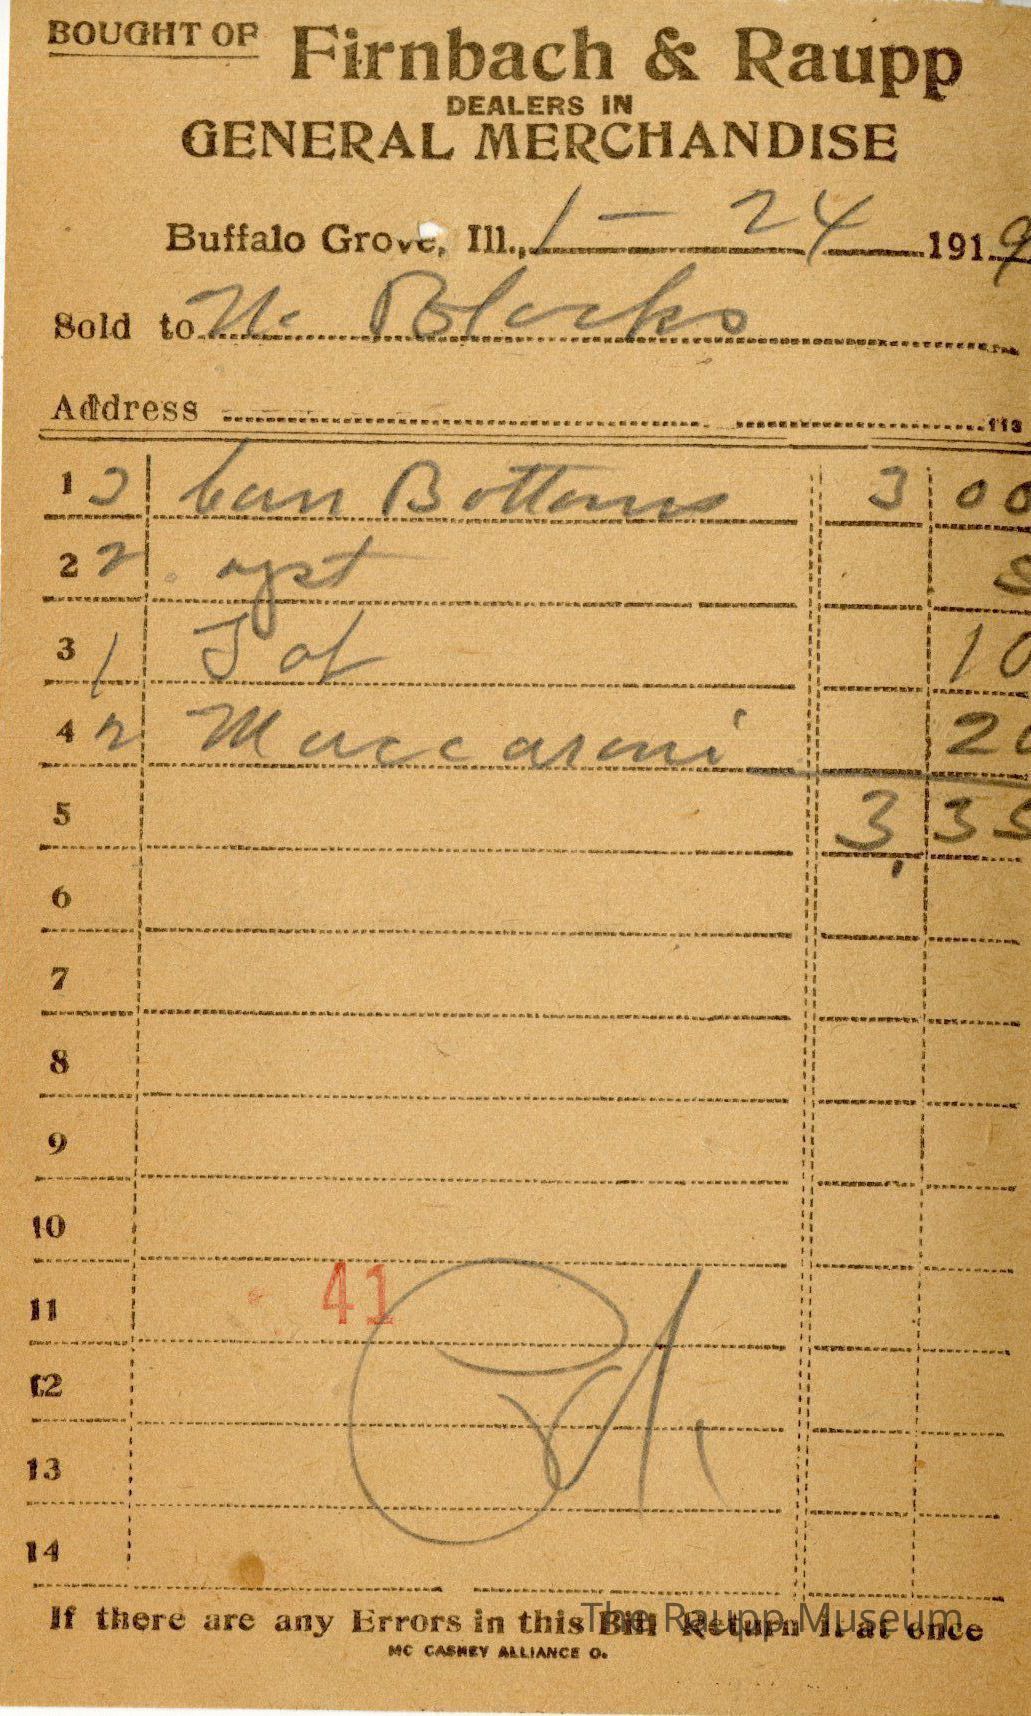 BOUGHT OF Firnbach & Raupp
DEALERS IN
GENERAL MERCHANDISE
Buffalo Grove, Ill., 1 - 24 1919
Sold to N. Blocks
Address
113
1 3 Can Bottoms 3 00
2 2 5
3 1 10
4 2 Maccaroni 20
5 3,35
6
7
8
9
10
41
11
12
13
14
If there are any Errors in this Bill Return it at once
The Raupp Museum
MC CASKEY ALLIANCE O.